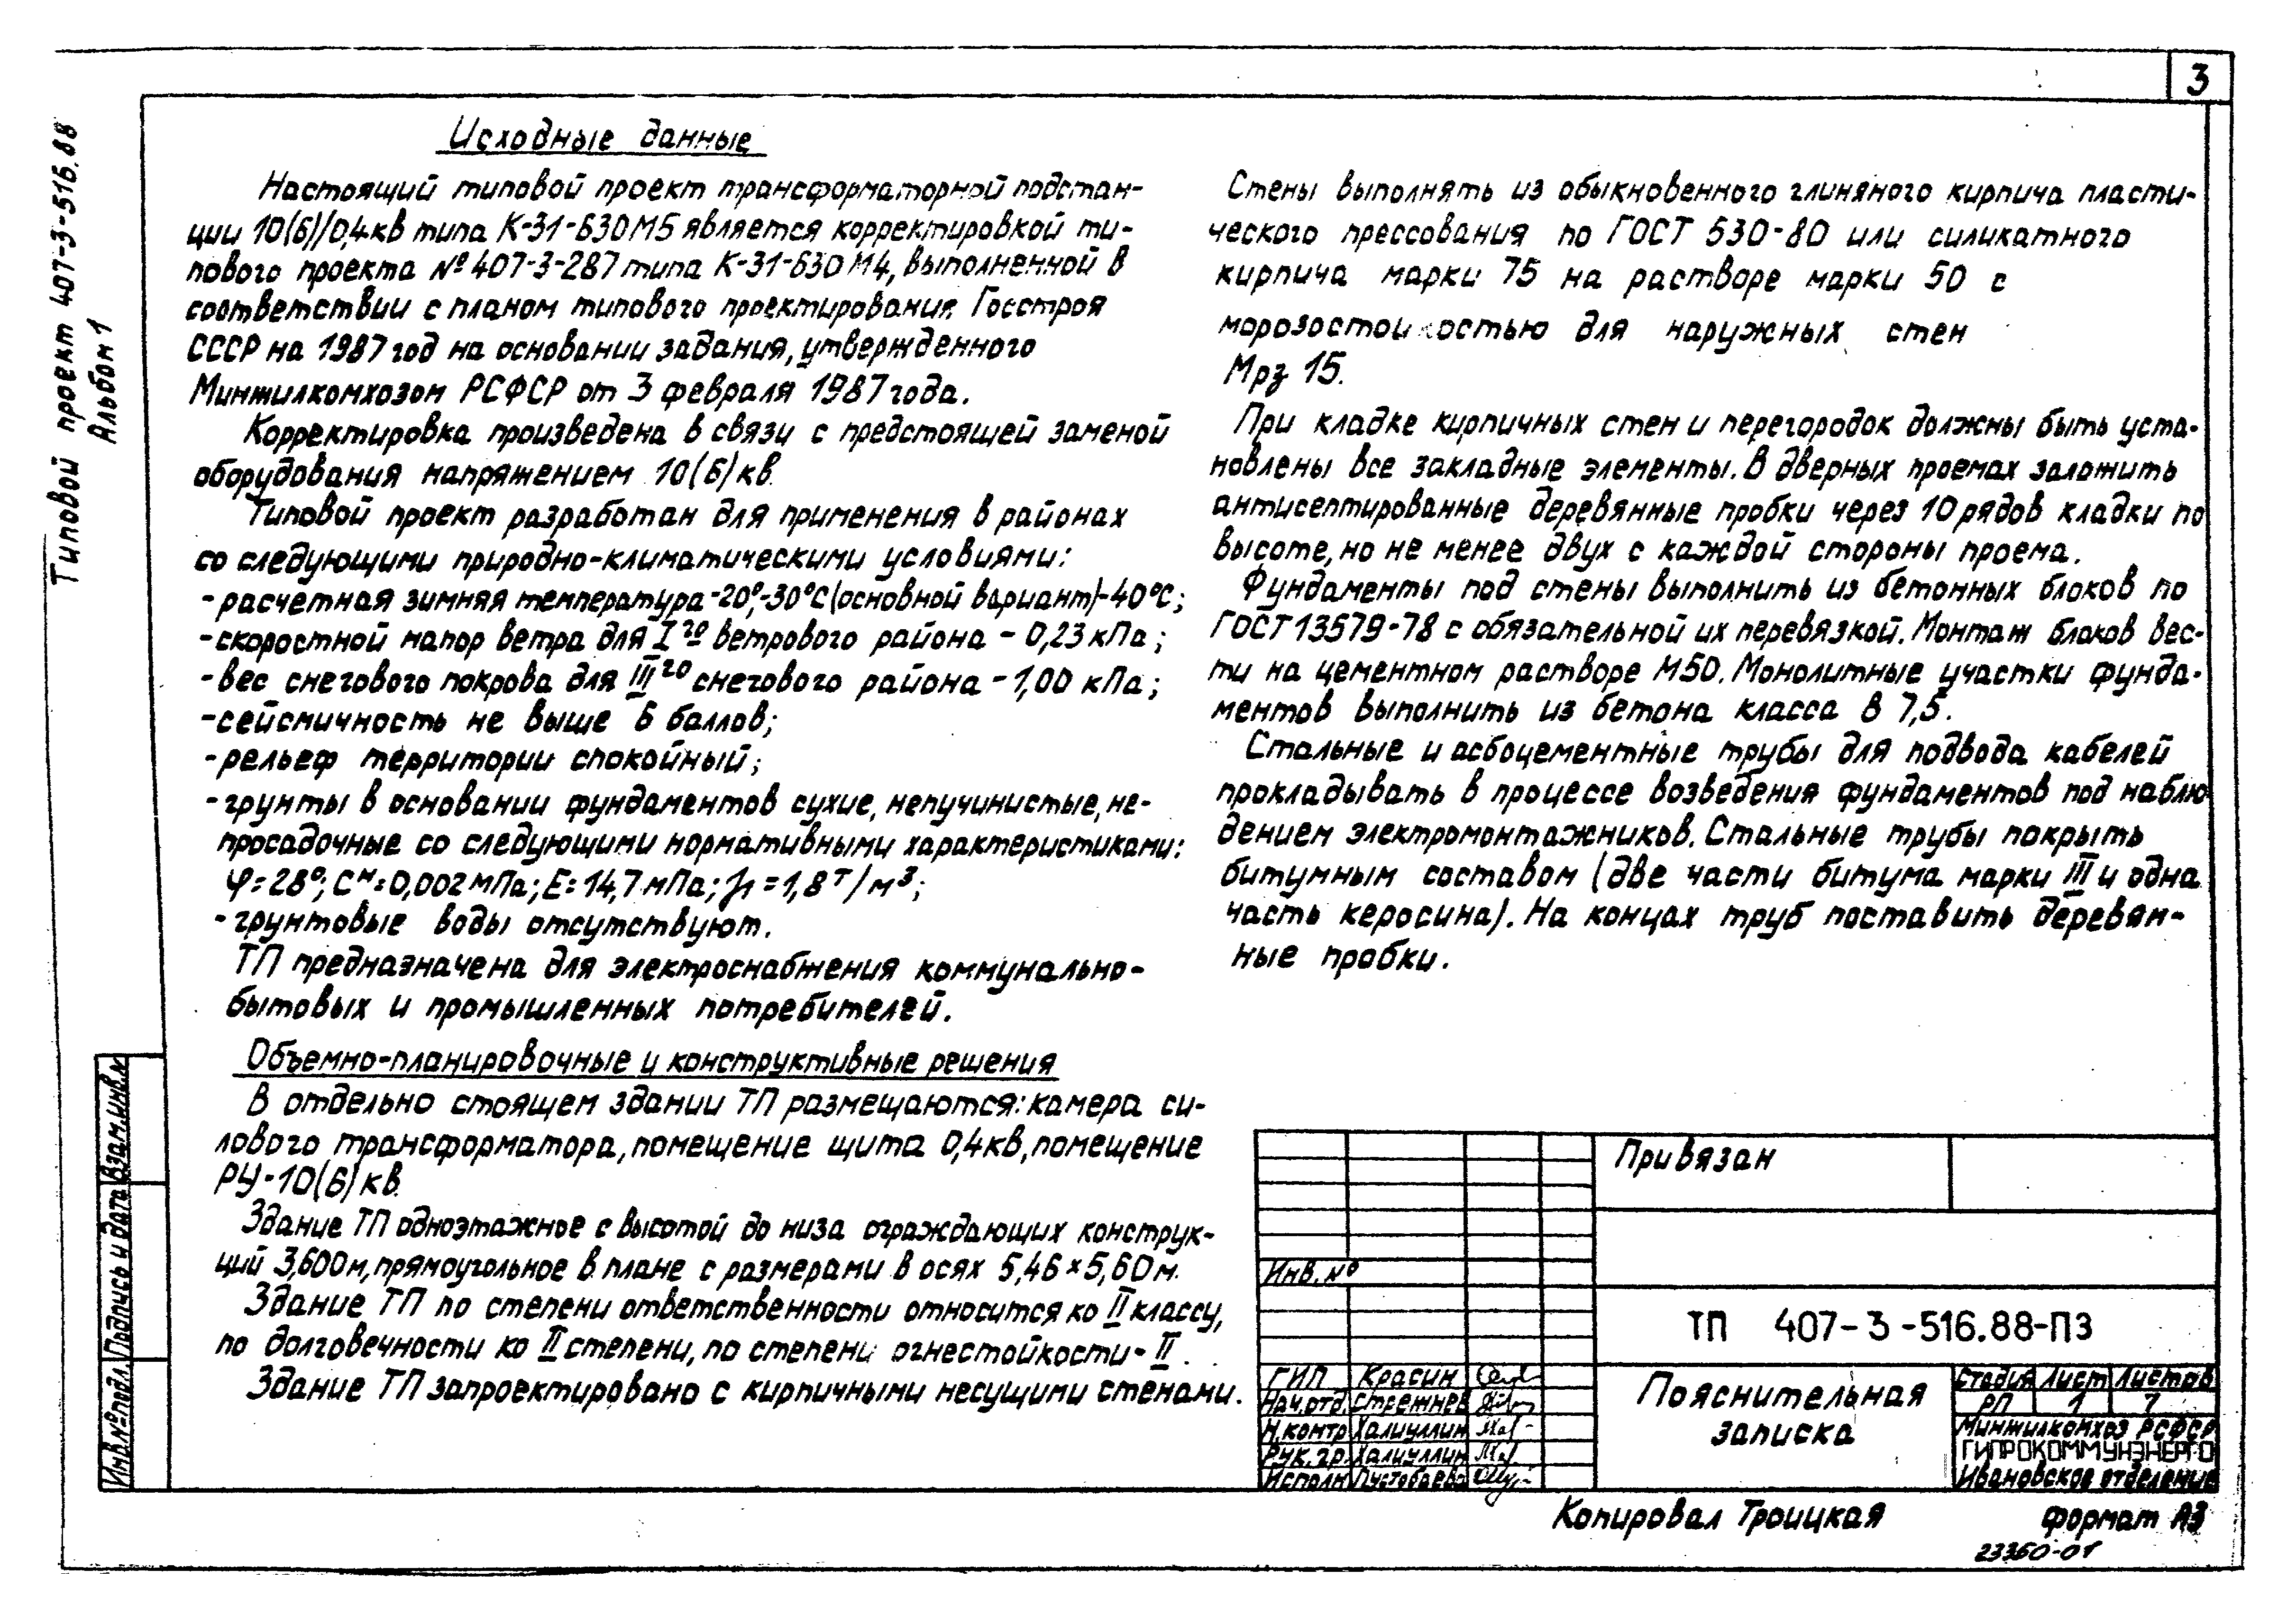 3
Типовой проект 407-3-516.88
Альбом 1
Исходные данные
Настоящий типовой проект трансформаторной подстан-
ции 10(6)/0,4кв типа К-31-630М5 является корректировкой ти-
пового проекта № 407-3-287 типа К-31-630М4, выполненной в
соответствии с планом типового проектирования Госстроя
СССР на 1987 год на основании задания, утвержденного
Минжилкомхозом РСФСР от 3 февраля 1987 года.
Корректировка произведена в связи с предстоящей заменой
оборудования напряжением 10(6) кв.
Типовой проект разработан для применения в районах
со следующими природно-климатическими условиями:
- расчетная зимняя температура -20°,-30°С (основной вариант)-40°С;
- скоростной напор ветра для I го ветрового района - 0,23 кПа;
- вес снегового покрова для III го снегового района - 1,00 кПа;
- сейсмичность не выше 6 баллов;
- рельеф территории спокойный;
- грунты в основании фундаментов сухие, непучинистые, не-
просадочные со следующими нормативными характеристиками:
φ=28°; Сᴴ=0,002мПа; Е=14,7мПа; γ1=1,8т/м³;
- грунтовые воды отсутствуют.
ТП предназначена для электроснабжения коммунально-
бытовых и промышленных потребителей.
Объемно-планировочные и конструктивные решения
В отдельно стоящем здании ТП размещаются: камера си-
лового трансформатора, помещение щита 0,4кв, помещение
РУ-10(6) кв.
Здание ТП одноэтажное с высотой до низа ограждающих конструк-
ций 3,600м, прямоугольное в плане с размерами в осях 5,46×5,60м.
Здание ТП по степени ответственности относится ко II классу,
по долговечности ко II степени, по степени огнестойкости - II.
Здание ТП запроектировано с кирпичными несущими стенами.
Стены выполнять из обыкновенного глиняного кирпича пласти-
ческого прессования по ГОСТ 530-80 или силикатного
кирпича марки 75 на растворе марки 50 с
морозостойкостью для наружных стен
Мрз 15.
При кладке кирпичных стен и перегородок должны быть уста-
новлены все закладные элементы. В дверных проемах заложить
антисептированные деревянные пробки через 10 рядов кладки по
высоте, но не менее двух с каждой стороны проема.
Фундаменты под стены выполнить из бетонных блоков по
ГОСТ 13579-78 с обязательной их перевязкой. Монтаж блоков вес-
ти на цементном растворе М50. Монолитные участки фунда-
ментов выполнить из бетона класса В 7,5.
Стальные и асбоцементные трубы для подвода кабелей
прокладывать в процессе возведения фундаментов под наблю
дением электромонтажников. Стальные трубы покрыть
битумным составом (две части битума марки III и одна
часть керосина). На концах труб поставить деревян-
ные пробки.
Взам.инв.№
Подпись и дата
Инв.№подл.
Привязан
Инв. №
ТП 407-3-516.88-ПЗ
ГИП Красин
Нач.отд. Стрежнев
Н.контр Халиуллин
Рук.гр. Халиуллин
Исполн Пустобаева
Пояснительная
записка
Стадия Лист Листов
РП 1 7
Минжилкомхоз РСФСР
ГИПРОКОММУНЭНЕРГО
Ивановское отделение
Копировал Троицкая Формат А3
23360-01